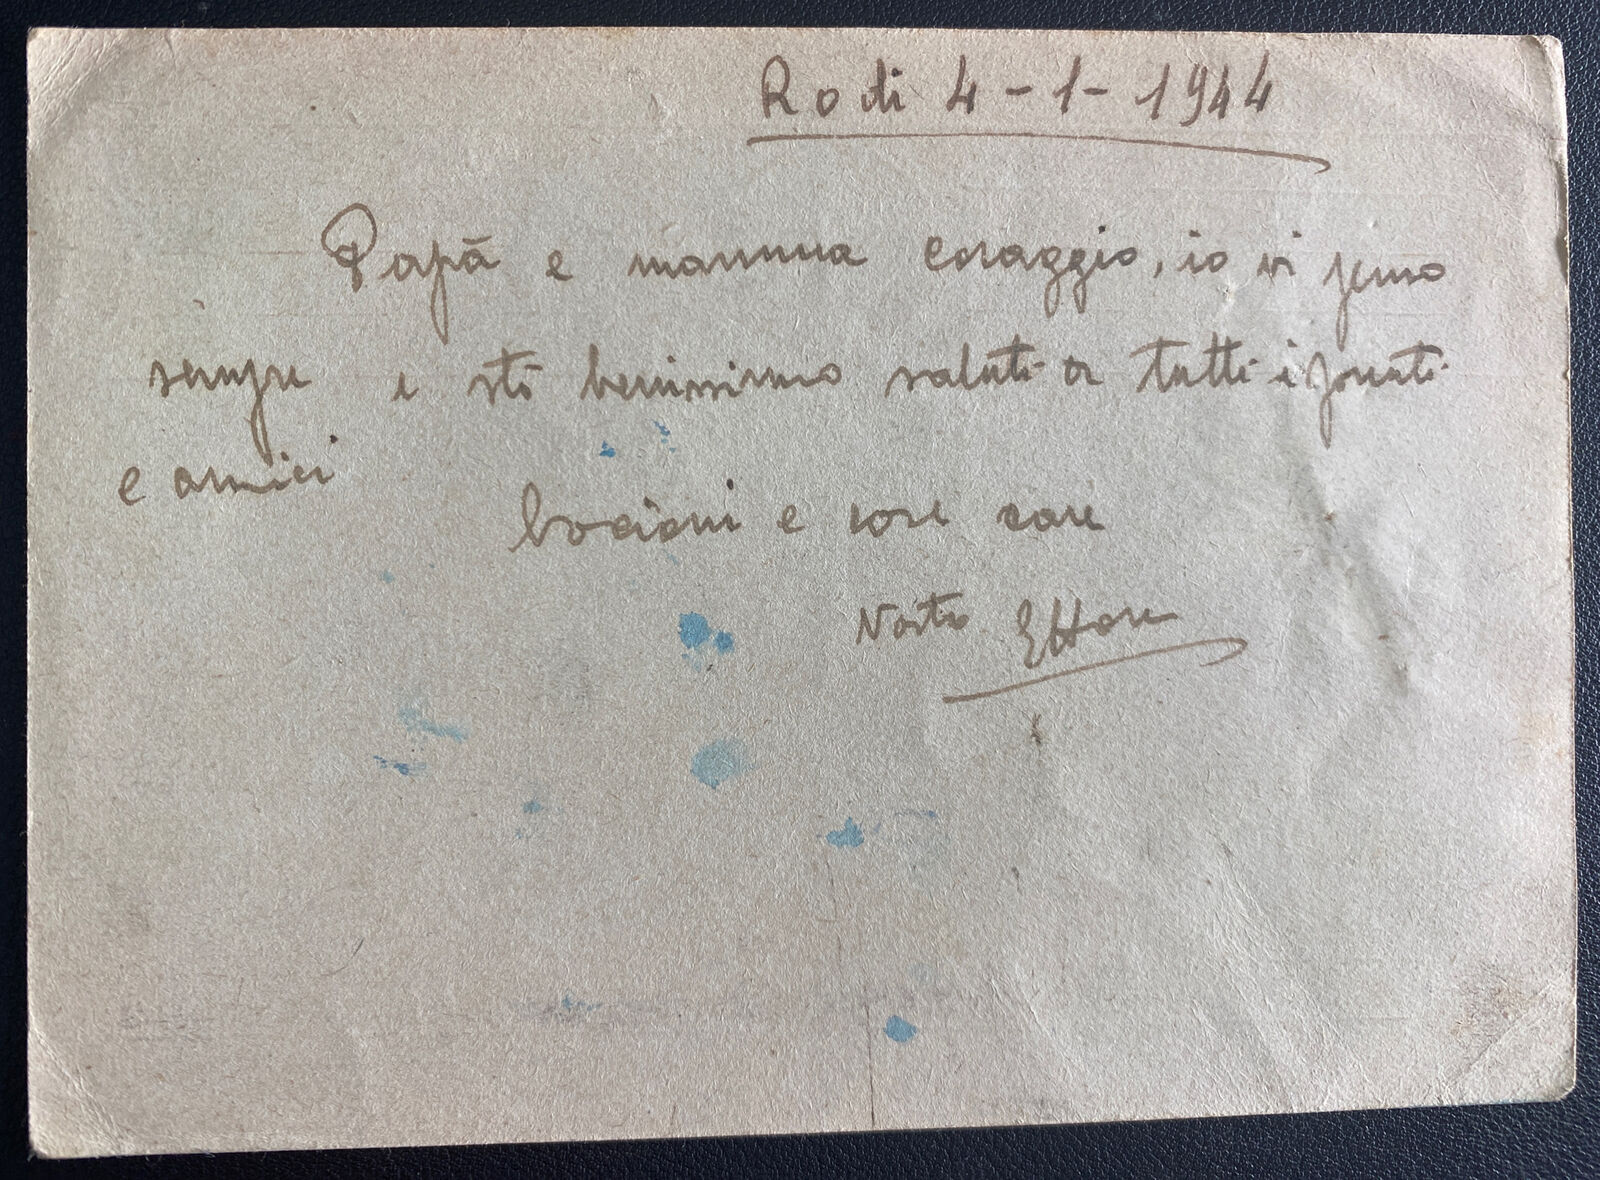 Rodi 4-1-1944
Papà e mamma coraggio, io vi penso
sempre e stò benissimo saluti a tutti i parenti
e amici
bacioni e cose care
Vostro Ettore